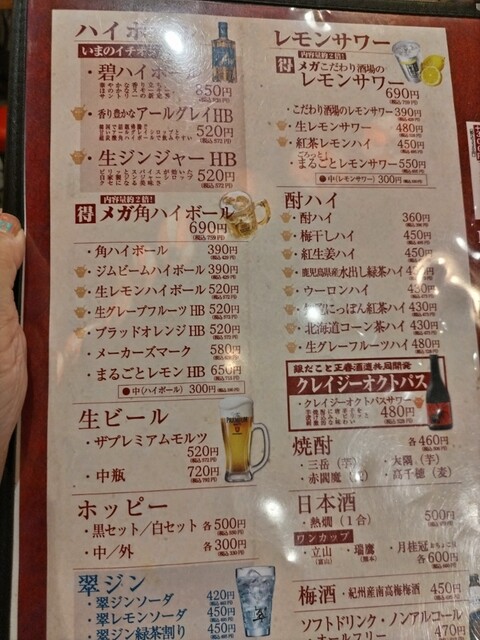 ハイボ
いまのイチオ
・碧ハイボール
850円
・香り豊かな アールグレイHB
520円
(税込572円)
・生ジンジャーHB
520円
(税込572円)
内容量約2倍!
得 メガ角ハイボール
690円
(税込759円)
・角ハイボール 390円
・ジムビームハイボール 390円
・生レモンハイボール 520円
・生グレープフルーツHB 520円
・ブラッドオレンジHB 520円
・メーカーズマーク 580円
・まるごとレモンHB 650円
●中(ハイボール) 300円
生ビール
・ザプレミアムモルツ
520円
(税込572円)
・中瓶 720円
(税込792円)
ホッピー
・黒セット/白セット 各500円
・中/外 各300円
翠ジン
・翠ジンソーダ 420円
・翠レモンソーダ 450円
・翠ジン緑茶割り 450円
レモンサワー
内容量約2倍!
得 メガこだわり酒場の
レモンサワー
690円
(税込759円)
・こだわり酒場のレモンサワー 390円
・生レモンサワー 480円
・紅茶レモンハイ 450円
ごろっと!
・まるごとレモンサワー 550円
●中(レモンサワー) 300円
酎ハイ
・酎ハイ 360円
・梅干しハイ 450円
・紅生姜ハイ 450円
・鹿児島県産水出し緑茶ハイ 430円
・ウーロンハイ 430円
にっぽん紅茶ハイ 430円
・北海道コーン茶ハイ 430円
・生グレープフルーツハイ 480円
銀だこと正春酒造共同開発
クレイジーオクトパス
・クレイジーオクトパスサワー
480円
(税込528円)
焼酎 各460円
・三岳(芋) ・大隅(芋)
・赤閻魔 ・高千穂(麦)
日本酒
・熱燗(1合) 500円
ワンカップ
・立山(富山) ・瑞鷹(熊本) ・月桂冠
各600円
梅酒 ・紀州産南高梅梅酒 450円
ソフトドリンク・ノンアルコール
450円
470円